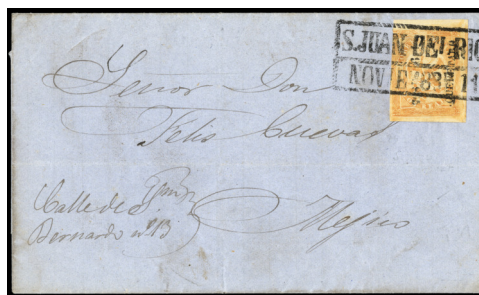 S. JUAN DEL RIO
NOV
Señor Don
Felis Cuevas
Calle de Sn
Bernardo nº 13
Mejico